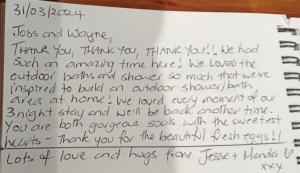 31/03/2024
Joss and Wayne,
THANK YOU, THANK YOU, THANK YOU!! We had
such an amazing time here! We loved the
outdoor baths and shower so much that we're
inspired to build an outdoor shower/bath
area at home! We loved every moment of our
3 night stay and we'll be back another time.
You are both gorgeous souls with the sweetest
hearts - Thank you for the beautiful fresh eggs!!
Lots of love and hugs from Jesse + Manda
xxx